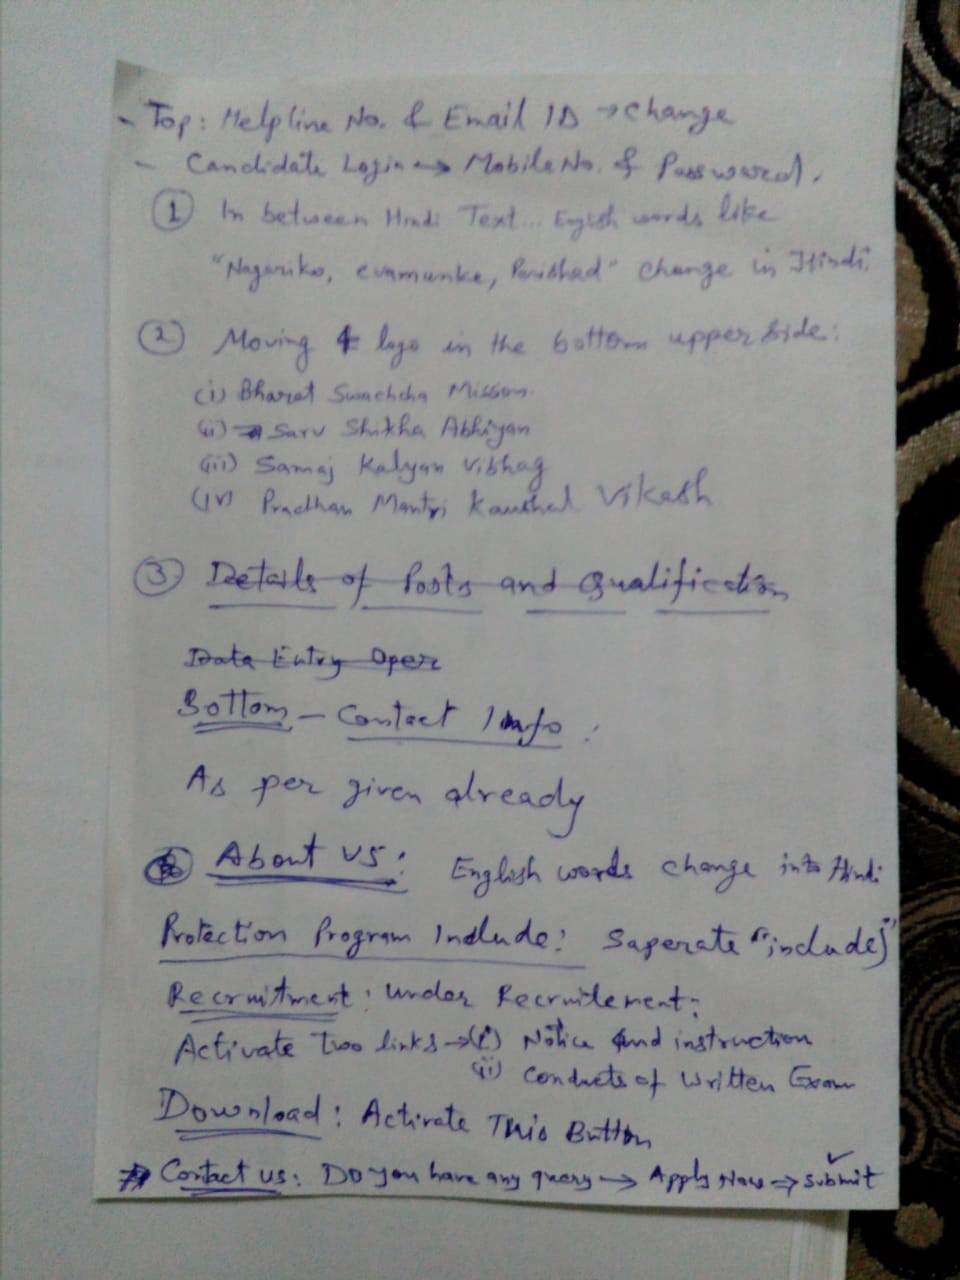 - Top: Helpline No. & Email ID → change
- Candidate Login → Mobile No. & Password.
① In between Hindi Text... English words like
"Nagariko, evamunke, Parishad" change in Hindi.
② Moving 4 logo in the bottom upper side:
(i) Bharat Swachcha Mission
(ii) Sarv Shikha Abhiyan
(iii) Samaj Kalyan Vibhag
(iv) Pradhan Mantri Kaushal Vikash
③ Details of Posts and Qualification
Data Entry Oper
Bottom - Contact Info :
As per given already
About US : English words change into Hindi
Protection Program Include : Saperate "include"
Recruitment : Under Recruitement :
Activate Two links → (i) Notice and instruction
(ii) Conducts of Written Exam
Download : Activate This Button
Contact us : Do you have any query → Apply Now → submit ✓